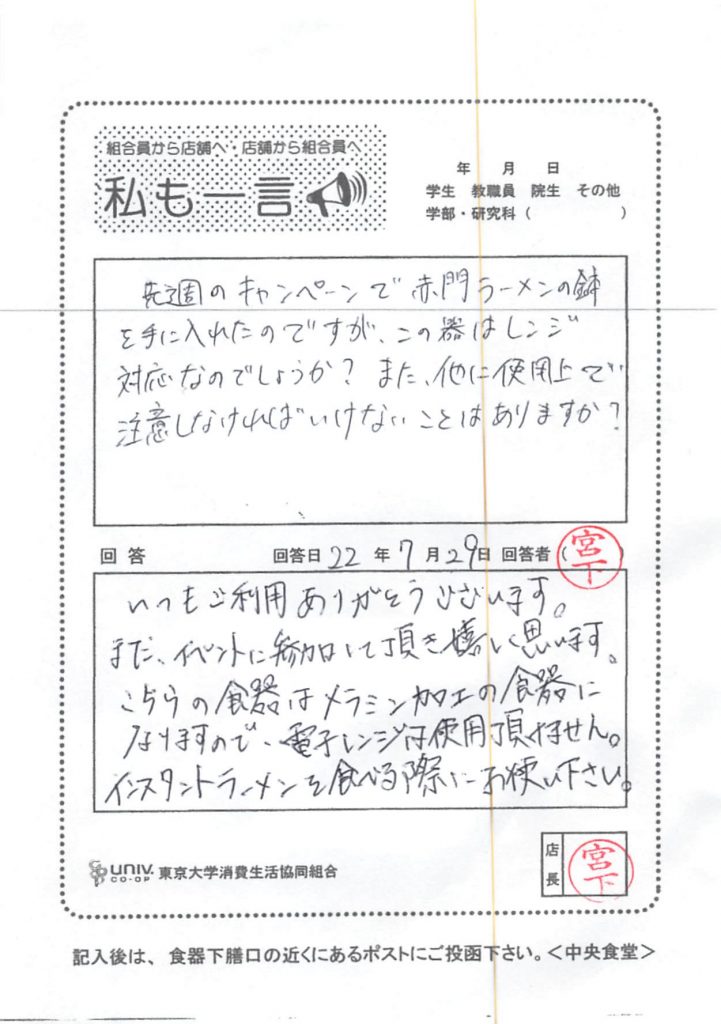 組合員から店舗へ・店舗から組合員へ
私も一言
年 月 日
学生 教職員 院生 その他
学部・研究科（ ）
先週のキャンペーンで赤門ラーメンの鉢
を手に入れたのですが、この器はレンジ
対応なのでしょうか？また、他に使用上で
注意しなければいけないことはありますか？
回答 回答日 22 年 7 月 29 日 回答者（宮下）
いつもご利用ありがとうございます。
また、イベントに参加して頂き嬉しく思います。
こちらの食器はメラミン加工の食器に
なりますので、電子レンジは使用頂けません。
インスタントラーメンを食べる際にお使い下さい。
UNIV. CO-OP 東京大学消費生活協同組合
店長 宮下
記入後は、食器下膳口の近くにあるポストにご投函下さい。＜中央食堂＞